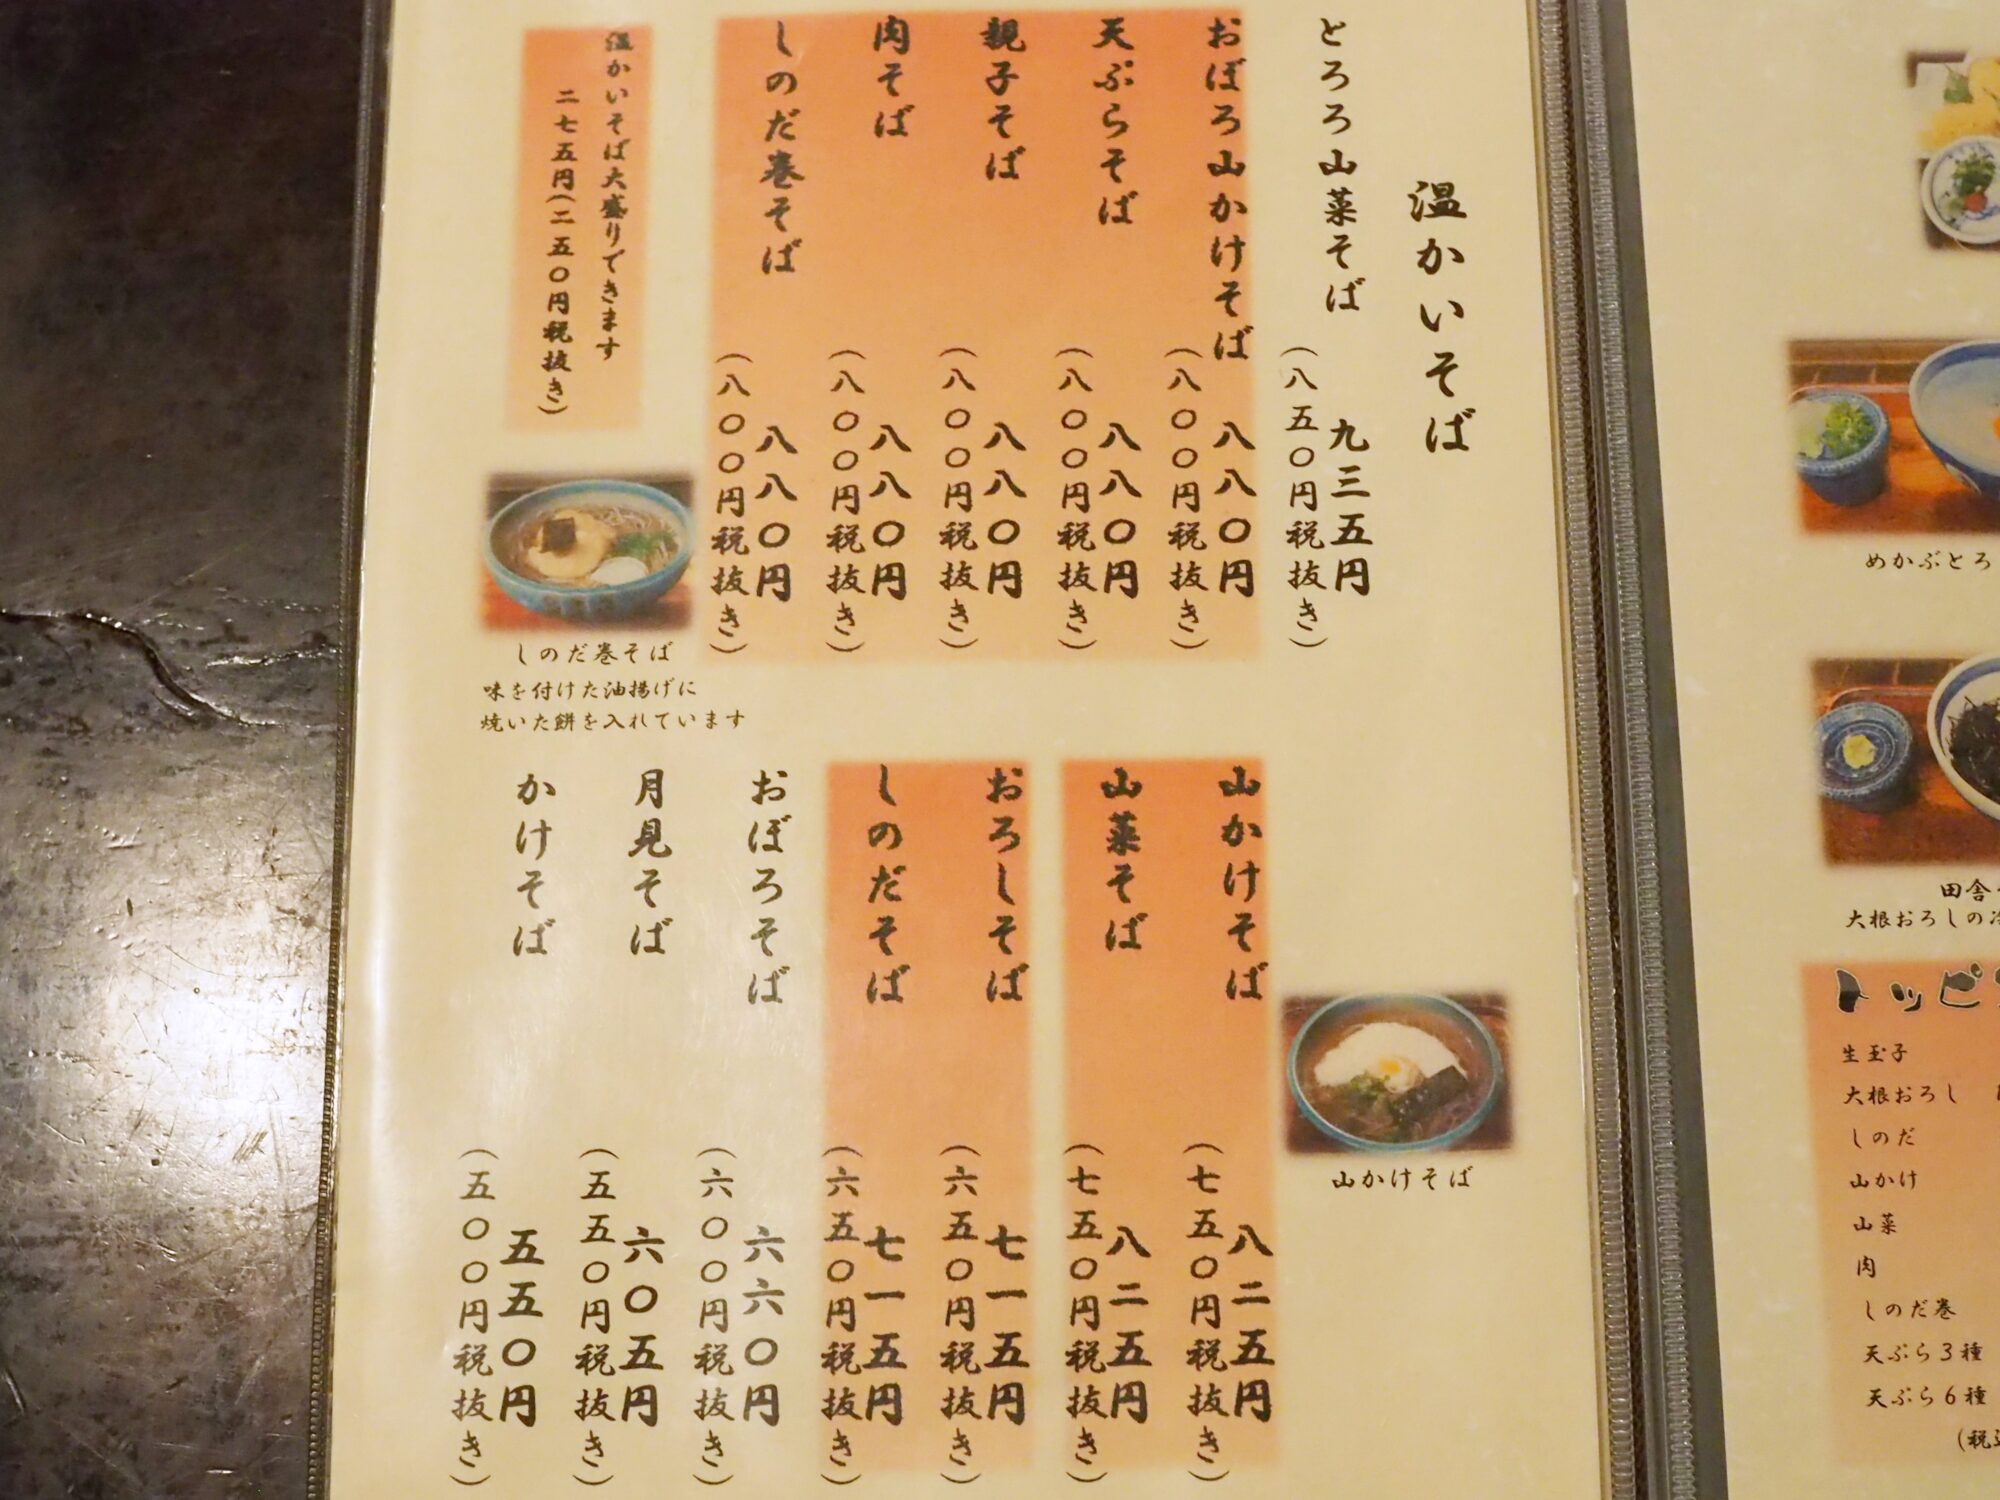 温かいそば
とろろ山菜そば
九三五円
(八五〇円税抜き)
おぼろ山かけそば
八八〇円
(八〇〇円税抜き)
天ぷらそば
八八〇円
(八〇〇円税抜き)
親子そば
八八〇円
(八〇〇円税抜き)
肉そば
八八〇円
(八〇〇円税抜き)
しのだ巻そば
八八〇円
(八〇〇円税抜き)
温かいそば大盛りできます
二七五円(二五〇円税抜き)
しのだ巻そば
味を付けた油揚げに
焼いた餅を入れています
山かけそば
山かけそば
八二五円
(七五〇円税抜き)
山菜そば
八二五円
(七五〇円税抜き)
おろしそば
七一五円
(六五〇円税抜き)
しのだそば
七一五円
(六五〇円税抜き)
おぼろそば
六六〇円
(六〇〇円税抜き)
月見そば
六〇五円
(五五〇円税抜き)
かけそば
五五〇円
(五〇〇円税抜き)
めかぶとろ
田舎
大根おろしの
トッピ
生玉子
大根おろし
しのだ
山かけ
山菜
肉
しのだ巻
天ぷら3種
天ぷら6種
(税